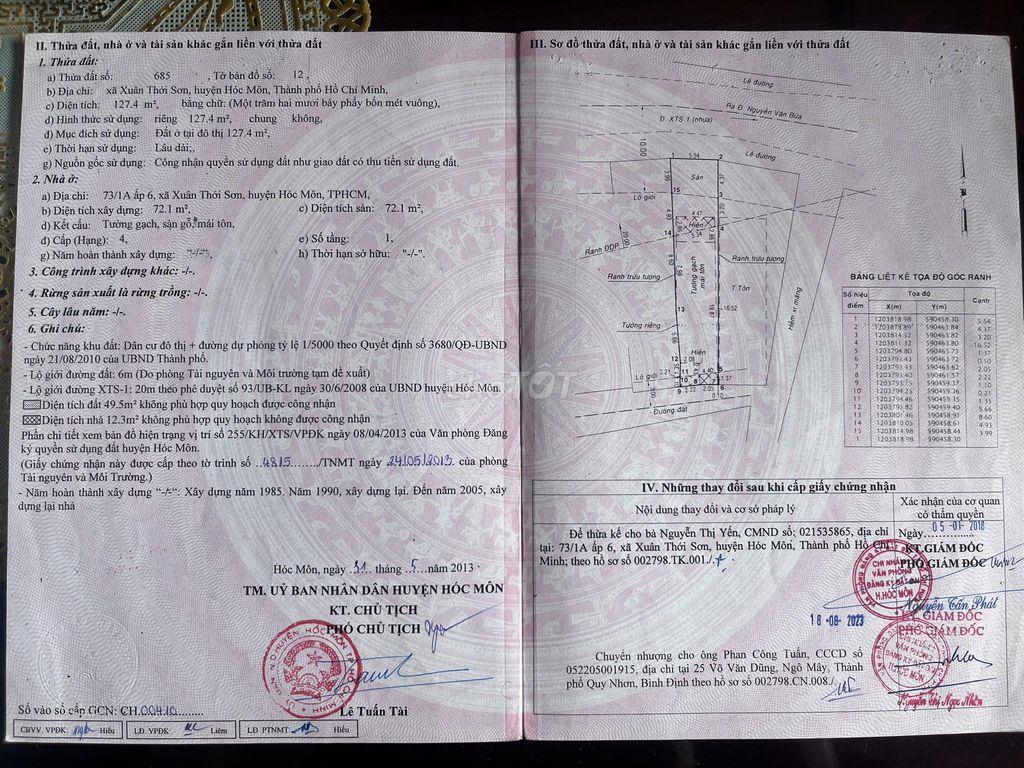 II. Thửa đất, nhà ở và tài sản khác gắn liền với thửa đất
1. Thửa đất:
a) Thửa đất số: 685 Tờ bản đồ số: 12,
b) Địa chỉ: xã Xuân Thới Sơn, huyện Hóc Môn, Thành phố Hồ Chí Minh,
c) Diện tích: 127.4 m², bằng chữ: (Một trăm hai mươi bảy phẩy bốn mét vuông),
d) Hình thức sử dụng: riêng 127.4 m², chung không,
đ) Mục đích sử dụng: Đất ở tại đô thị 127.4 m²,
e) Thời hạn sử dụng: Lâu dài;,
g) Nguồn gốc sử dụng: Công nhận quyền sử dụng đất như giao đất có thu tiền sử dụng đất.
2. Nhà ở:
a) Địa chỉ: 73/1A ấp 6, xã Xuân Thới Sơn, huyện Hóc Môn, TPHCM,
b) Diện tích xây dựng: 72.1 m², c) Diện tích sàn: 72.1 m²,
d) Kết cấu: Tường gạch, sàn gỗ, mái tôn,
đ) Cấp (Hạng): 4, e) Số tầng: 1,
g) Năm hoàn thành xây dựng: "-/-", h) Thời hạn sở hữu: "-/-".
3. Công trình xây dựng khác: -/-.
4. Rừng sản xuất là rừng trồng: -/-.
5. Cây lâu năm: -/-.
6. Ghi chú:
- Chức năng khu đất: Dân cư đô thị + đường dự phóng tỷ lệ 1/5000 theo Quyết định số 3680/QĐ-UBND
ngày 21/08/2010 của UBND Thành phố.
- Lộ giới đường đất: 6m (Do phòng Tài nguyên và Môi trường tạm đề xuất)
- Lộ giới đường XTS-1: 20m theo phê duyệt số 93/UB-KL ngày 30/6/2008 của UBND huyện Hóc Môn.
Diện tích đất 49.5m² không phù hợp quy hoạch được công nhận
Diện tích nhà 12.3m² không phù hợp quy hoạch không được công nhận
Phần chi tiết xem bản đồ hiện trạng vị trí số 255/KH/XTS/VPĐK ngày 08/04/2013 của Văn phòng Đăng
ký quyền sử dụng đất huyện Hóc Môn.
(Giấy chứng nhận này được cấp theo tờ trình số ..4815......./TNMT ngày 24/05/2013 của phòng
Tài nguyên và Môi Trường.)
- Năm hoàn thành xây dựng "-/-": Xây dựng năm 1985. Năm 1990, xây dựng lại. Đến năm 2005, xây
dựng lại nhà
Hóc Môn, ngày 31 tháng 5 năm 2013
TM. UỶ BAN NHÂN DÂN HUYỆN HÓC MÔN
KT. CHỦ TỊCH
PHÓ CHỦ TỊCH
Lê Tuấn Tài
Số vào sổ cấp GCN: CH.00410.........
CBVV. VPĐK: Hiếu LĐ. VPĐK: Liêm LĐ. PTNMT: Hiếu
III. Sơ đồ thửa đất, nhà ở và tài sản khác gắn liền với thửa đất
Lề đường
Ra Đ. Nguyễn Văn Bứa
Đ. XTS 1 (nhựa)
Lề đường
10.00
1 5.54 2
3.99 Sân 4.37
15 3
Lộ giới
4.93 3.20
4.47
14 Hiên 4
5.54
20.00
Ranh ĐDP
8.60 7.98
Ranh trừu tượng Ranh trừu tượng
Tường gạch
mái tôn
T.Tôn
Hẻm xi măng
13 16.52
Tường riêng
Hiên
12 2.08
Lộ giới 0.21 11 4.60 5
10 8 7 1.37
9 2.22 2.05 6
0.10
Đường đất
BẢNG LIỆT KÊ TỌA ĐỘ GÓC RANH
Số hiệu điểm Tọa độ Cạnh
X(m) Y(m)
1 1203818.98 590458.30 5.54
2 1203818.89 590463.84 4.37
3 1203814.52 590463.82 3.20
4 1203811.32 590463.80 16.52
5 1203794.80 590463.73 1.37
6 1203793.43 590463.72 0.10
7 1203793.43 590463.62 2.05
8 1203793.40 590461.57 2.22
9 1203793.15 590459.37 1.10
10 1203794.25 590459.36 0.21
11 1203794.46 590459.35 1.35
12 1203795.82 590459.40 5.66
13 1203801.46 590458.91 8.60
14 1203810.05 590458.61 4.93
15 1203814.98 590458.44 3.99
1 1203818.98 590458.30
CHỢ TỐT
IV. Những thay đổi sau khi cấp giấy chứng nhận
Nội dung thay đổi và cơ sở pháp lý
Xác nhận của cơ quan
có thẩm quyền
Để thừa kế cho bà Nguyễn Thị Yến, CMND số; 021535865, địa chỉ
tại: 73/1A ấp 6, xã Xuân Thới Sơn, huyện Hóc Môn, Thành phố Hồ Chí
Minh; theo hồ sơ số 002798.TK.001./.
05-01-2018
Ngày..............
KT.GIÁM ĐỐC
PHÓ GIÁM ĐỐC
CHI NHÁNH
VĂN PHÒNG
ĐĂNG KÝ ĐẤT ĐAI
H.HÓC MÔN
Nguyễn Tấn Phát
18-08-2023
KT. GIÁM ĐỐC
PHÓ GIÁM ĐỐC
Chuyển nhượng cho ông Phan Công Tuấn, CCCD số
052205001915, địa chỉ tại 25 Võ Văn Dũng, Ngô Mây, Thành
phố Quy Nhơn, Bình Định theo hồ sơ số 002798.CN.008./.
Nguyễn Thị Ngọc Nhãn